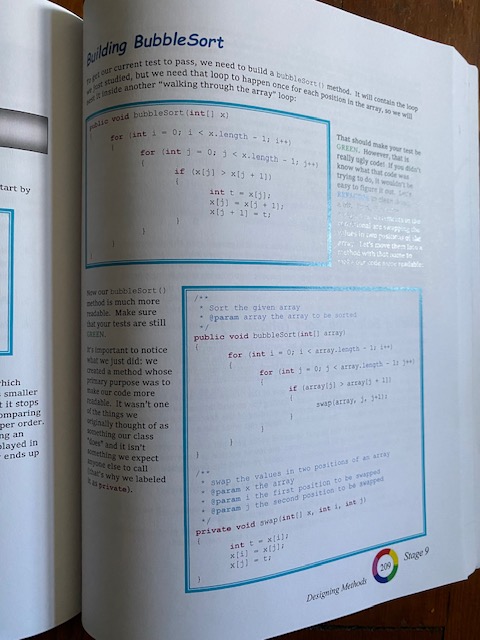 Building BubbleSort
To get our current test to pass, we need to build a bubbleSort() method. It will contain the loop
we just studied, but we need that loop to happen once for each position in the array, so we will
put it inside another "walking through the array" loop:
public void bubbleSort(int[] x)
{
for (int i = 0; i < x.length - 1; i++)
{
for (int j = 0; j < x.length - 1; j++)
{
if (x[j] > x[j + 1])
{
int t = x[j];
x[j] = x[j + 1];
x[j + 1] = t;
}
}
}
}
That should make your test be
GREEN. However, that is
really ugly code! If you didn't
know what that code was
trying to do, it wouldn't be
easy to figure it out. Let's
values in two positions of the
array. Let's move them into a
method with that name to
Now our bubbleSort()
method is much more
readable. Make sure
that your tests are still
GREEN.
It's important to notice
what we just did: we
created a method whose
primary purpose was to
make our code more
readable. It wasn't one
of the things we
originally thought of as
something our class
"does" and it isn't
something we expect
anyone else to call
(that's why we labeled
it as private).
/**
* Sort the given array
* @param array the array to be sorted
*/
public void bubbleSort(int[] array)
{
for (int i = 0; i < array.length - 1; i++)
{
for (int j = 0; j < array.length - 1; j++)
{
if (array[j] > array[j + 1])
{
swap(array, j, j+1);
}
}
}
}
/**
* swap the values in two positions of an array
* @param x the array
* @param i the first position to be swapped
* @param j the second position to be swapped
*/
private void swap(int[] x, int i, int j)
{
int t = x[i];
x[i] = x[j];
x[j] = t;
}
Designing Methods 209 Stage 9
tart by
hich
smaller
t it stops
omparing
per order.
ng an
played in
ends up